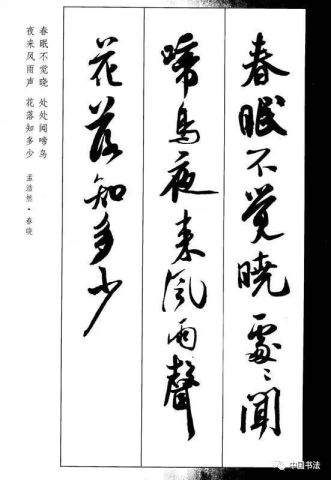 春眠不觉晓處〻闻
啼鸟夜来风雨聲
花落知多少
春眠不觉晓 处处闻啼鸟
夜来风雨声 花落知多少 孟浩然·春晓
中国书法